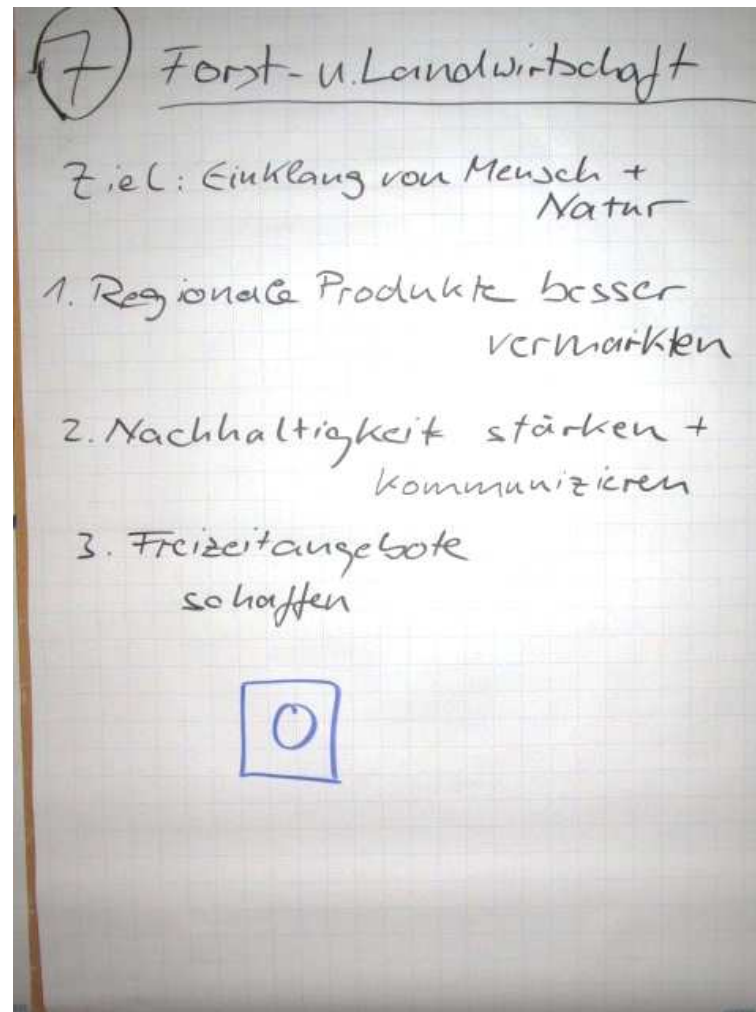 7 Forst- u. Landwirtschaft
Ziel: Einklang von Mensch +
Natur
1. Regionale Produkte besser
vermarkten
2. Nachhaltigkeit stärken +
kommunizieren
3. Freizeitangebote
schaffen
0